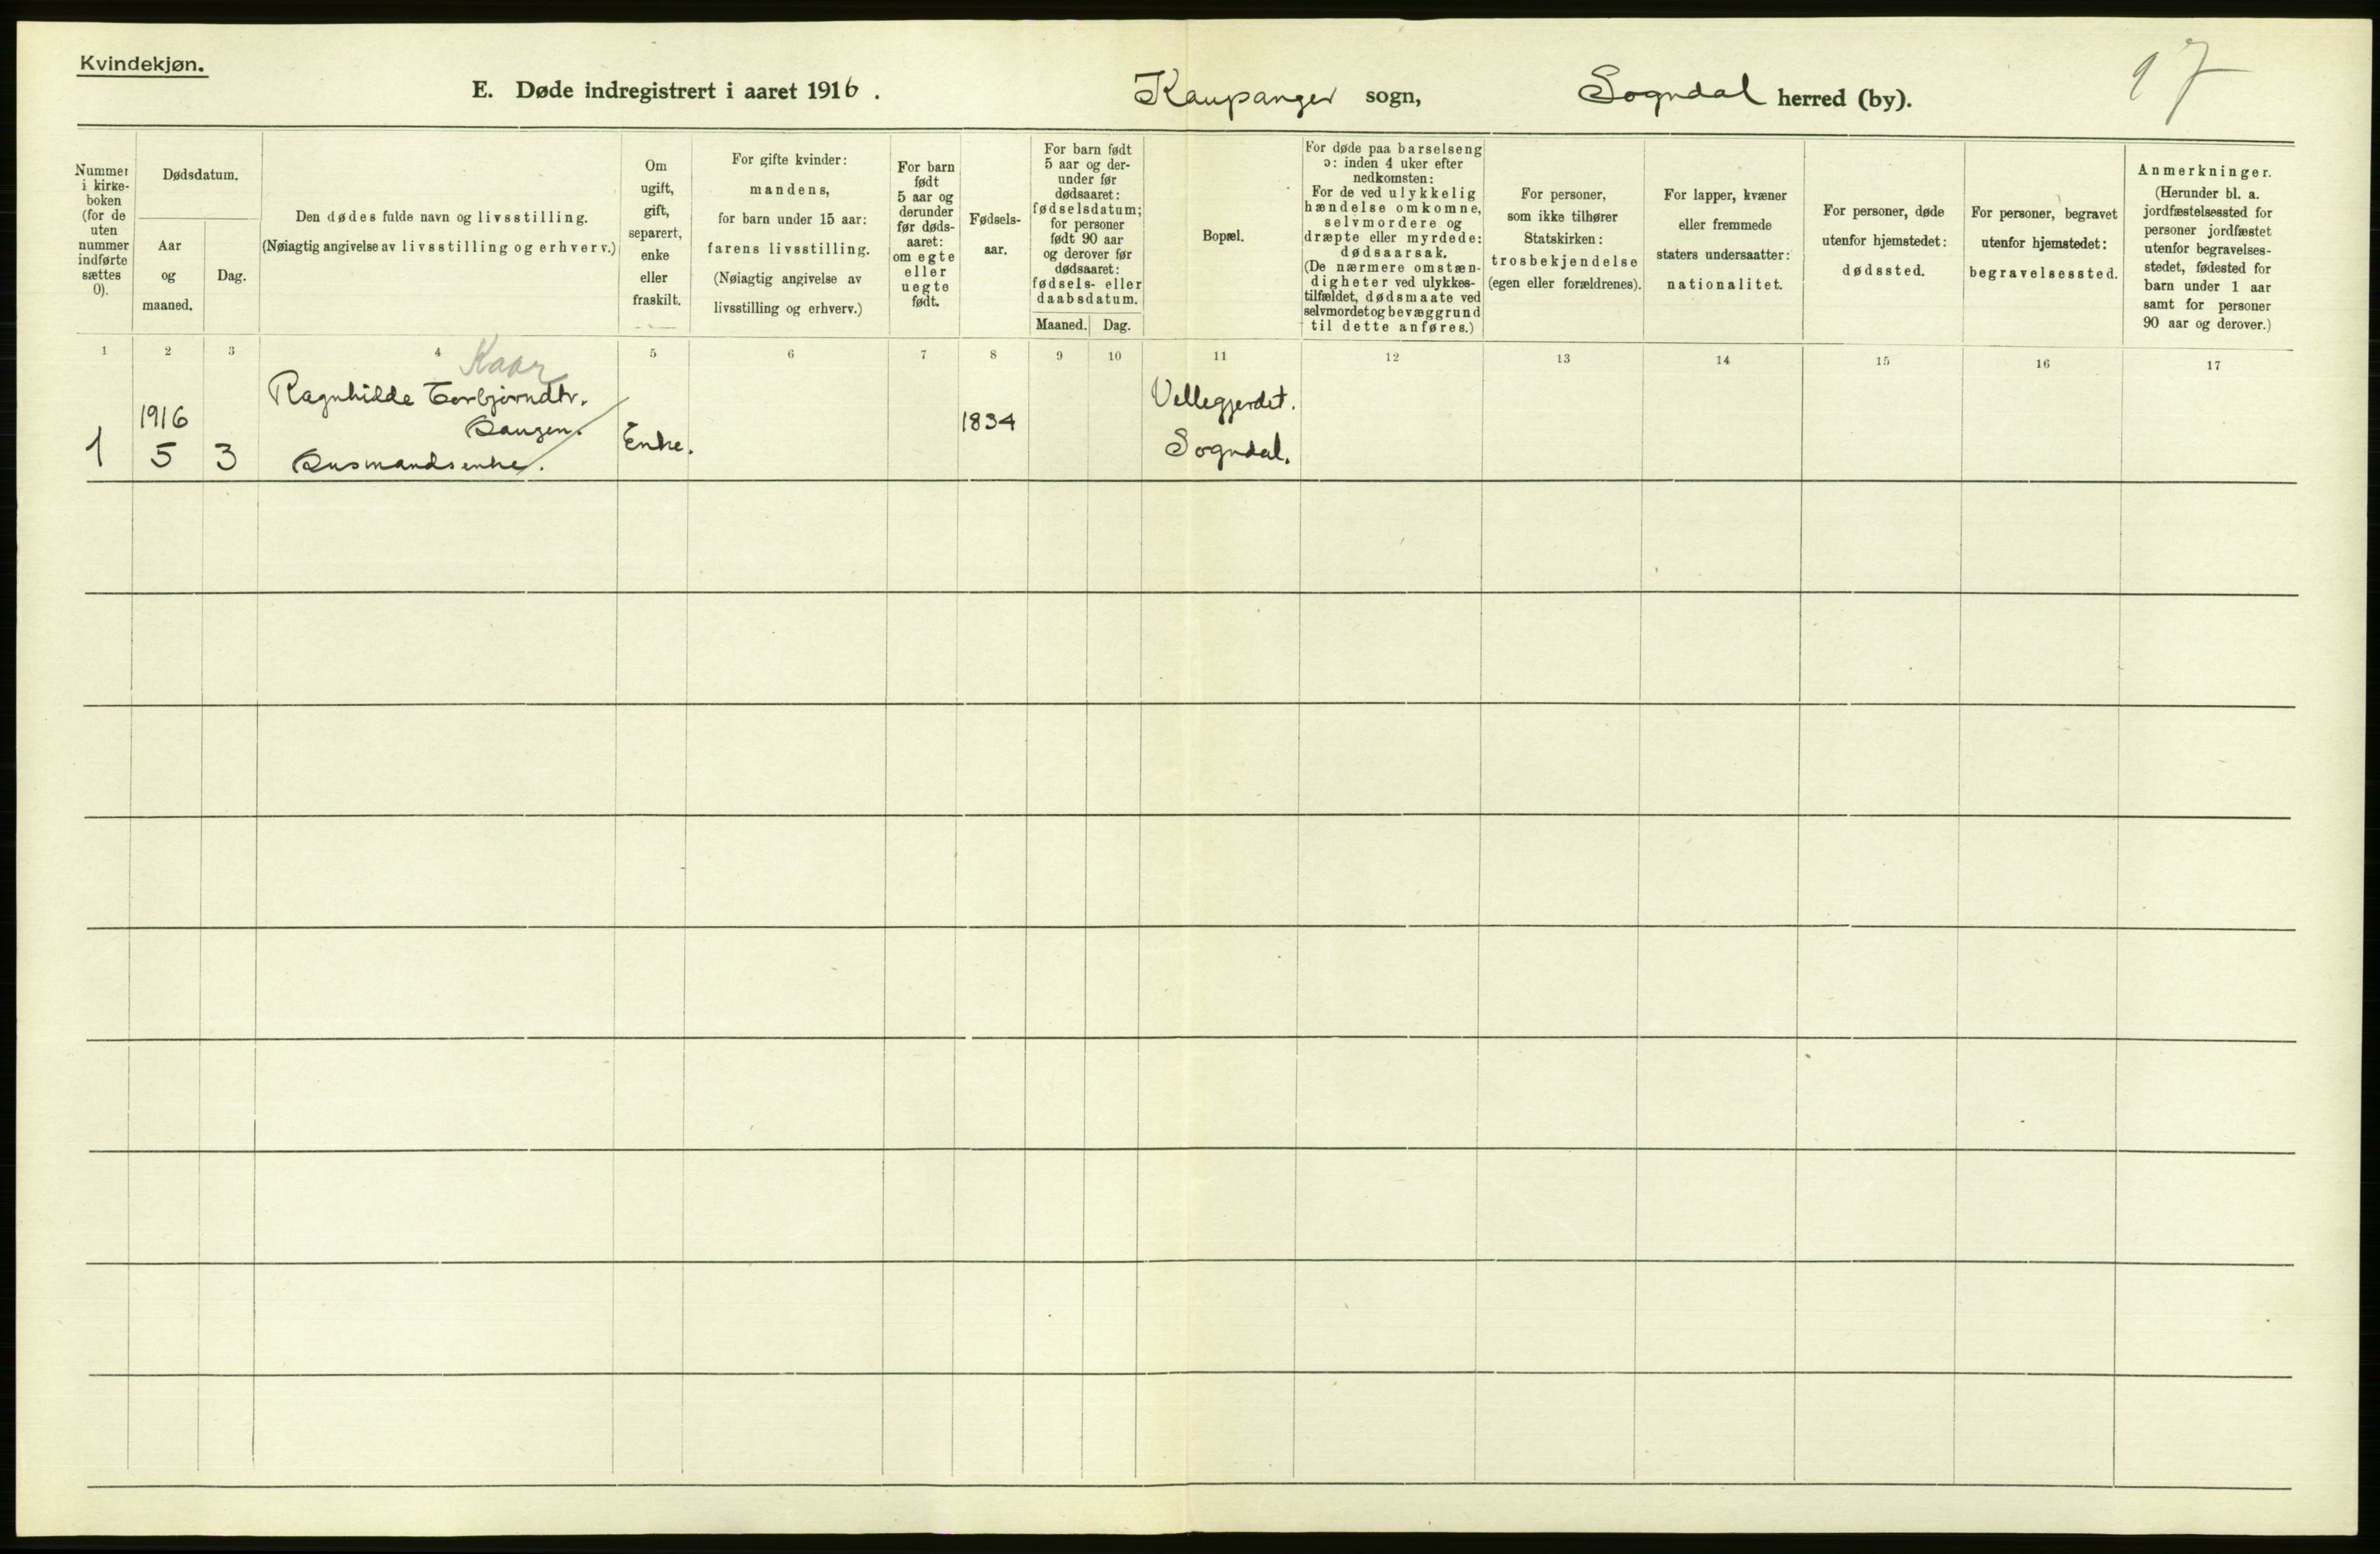 Kvindekjøn.
E. Døde indregistrert i aaret 1916.
Kaupanger sogn,
Sogndal herred (by).
17
Nummer
i kirke-
boken
(for de
uten
nummer
indførte
sættes
0).
Dødsdatum.
Aar
og
maaned.
Dag.
Den dødes fulde navn og livsstilling.
(Nøiagtig angivelse av livsstilling og erhverv.)
Om
ugift,
gift,
separert,
enke
eller
fraskilt.
For gifte kvinder:
mandens,
for barn under 15 aar:
farens livsstilling.
(Nøiagtig angivelse av
livsstilling og erhverv.)
For barn
født
5 aar og
derunder
før døds-
aaret:
om egte
eller
uegte
født.
Fødsels-
aar.
For barn født
5 aar og der-
under før
dødsaaret:
fødselsdatum;
for personer
født 90 aar
og derover før
dødsaaret:
fødsels- eller
daabsdatum.
Maaned. Dag.
Bopæl.
For døde paa barselseng
ɔ: inden 4 uker efter
nedkomsten:
For de ved ulykkelig
hændelse omkomne,
selvmordere og
dræpte eller myrdede:
dødsaarsak.
(De nærmere omstæn-
digheter ved ulykkes-
tilfældet, dødsmaate ved
selvmordet og bevæggrund
til dette anføres.)
For personer,
som ikke tilhører
Statskirken:
trosbekjendelse
(egen eller forældrenes).
For lapper, kvæner
eller fremmede
staters undersaatter:
nationalitet.
For personer, døde
utenfor hjemstedet:
dødssted.
For personer, begravet
utenfor hjemstedet:
begravelsessted.
Anmerkninger.
(Herunder bl. a.
jordfæstelsessted for
personer jordfæstet
utenfor begravelses-
stedet, fødested for
barn under 1 aar
samt for personer
90 aar og derover.)
1 2 3 4 5 6 7 8 9 10 11 12 13 14 15 16 17
Kaar
Ragnhilde Torbjørndtr.
1916
1 5 3
Husmandsenke.
Enke.
1834
Vellegjerdet.
Sogndal.